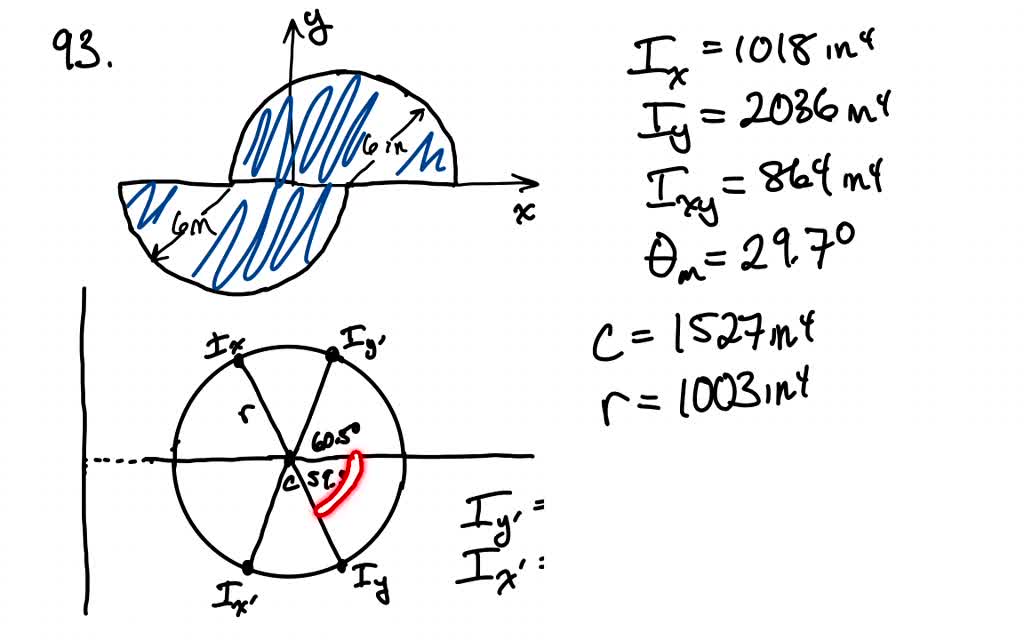 93.
y
6 in
x
6in
I_x = 1018 in⁴
I_y = 2036 in⁴
I_xy = 864 in⁴
θ_m = 29.7°
c = 1527 in⁴
r = 1003 in⁴
I_x
I_y'
r
60.5°
c
I_x'
I_y
I_y' =
I_x' =